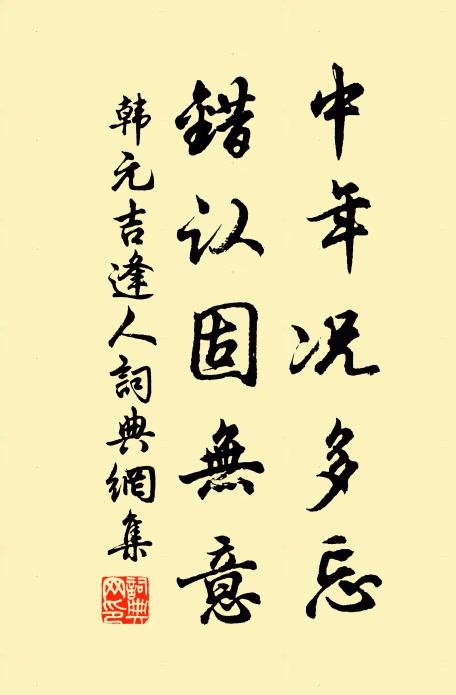 中年况多忘
錯认固無意
韩元吉逢人詞典網集
詞典网印